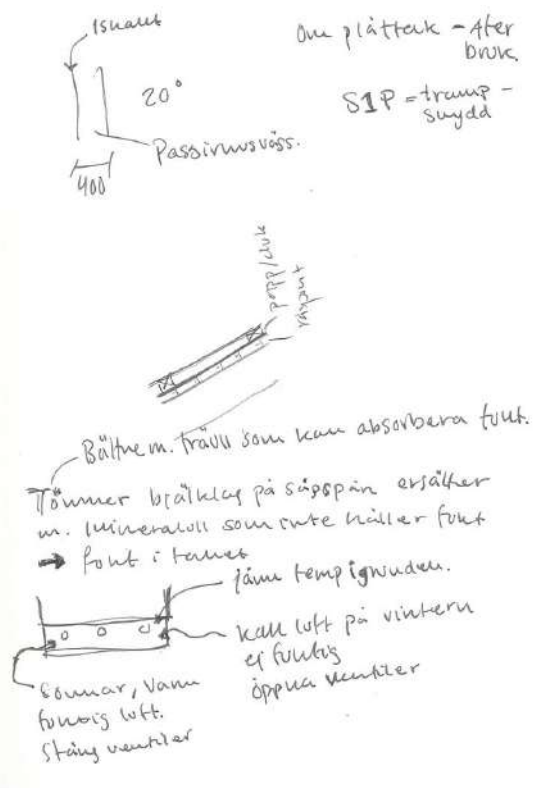 Iskallt
20°
Passivhusvägg.
400
Om plåttak - Åter
bruk.
S1P = tramp -
skydd
papp/duk
mycket
Bättre m. träull som kan absorbera fukt.
Tömmer bjälklag på sågspån ersätter
m. Mineralull som inte håller fukt
→ fukt i taket
jämn temp i grunden.
kall luft på vintern
ej fuktig
öppna ventiler
Sommar, varm
fuktig luft.
Stäng ventiler